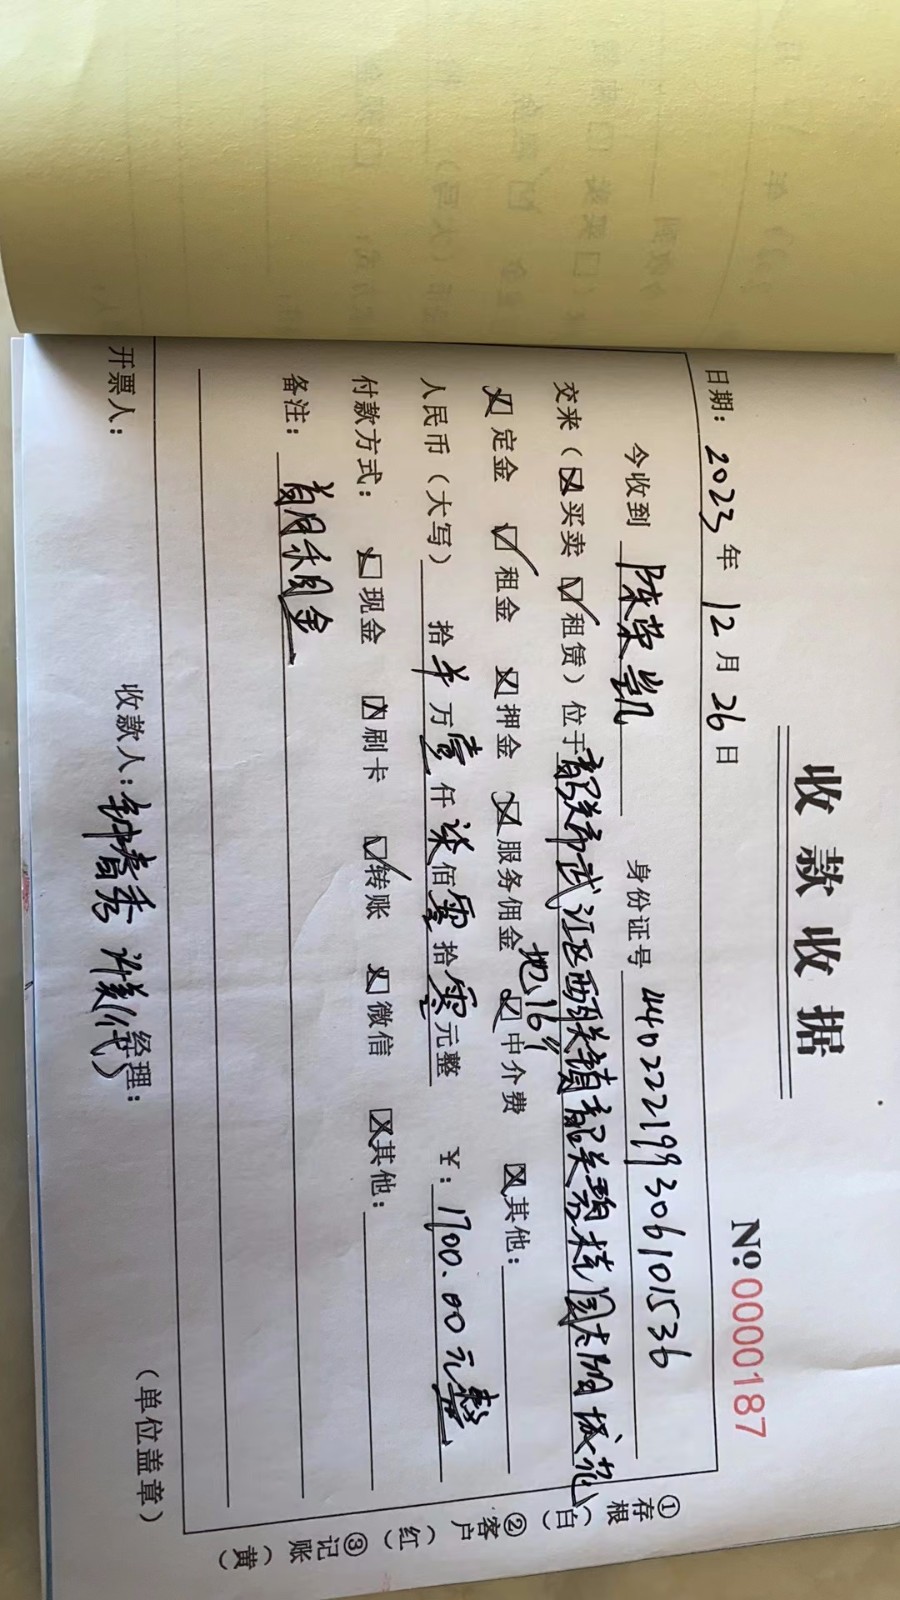 收款收据
No.0000187
日期：2023年12月26日
今收到 陈荣凯 身份证号 440222199306101536
交来（☒买卖 ☑租赁）位于韶关市武江区西联镇韶关碧桂园太阳城花
地169
☒定金 ☑租金 ☒押金 ☒服务佣金 ☒中介费 ☒其他：
人民币（大写） 拾 万壹仟柒佰零拾零元整 ￥：1700.00元整
付款方式： ☒现金 ☒刷卡 ☑转账 ☒微信 ☒其他：
备注：首月租金
开票人： 收款人：钟春秀 经理： （单位盖章）
①存根（白） ②客户（红） ③记账（黄）